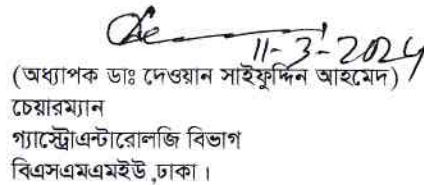 11-3-2024
(অধ্যাপক ডাঃ দেওয়ান সাইফুদ্দিন আহমেদ)
চেয়ারম্যান
গ্যাস্ট্রোএন্টারোলজি বিভাগ
বিএসএমএমইউ,ঢাকা।